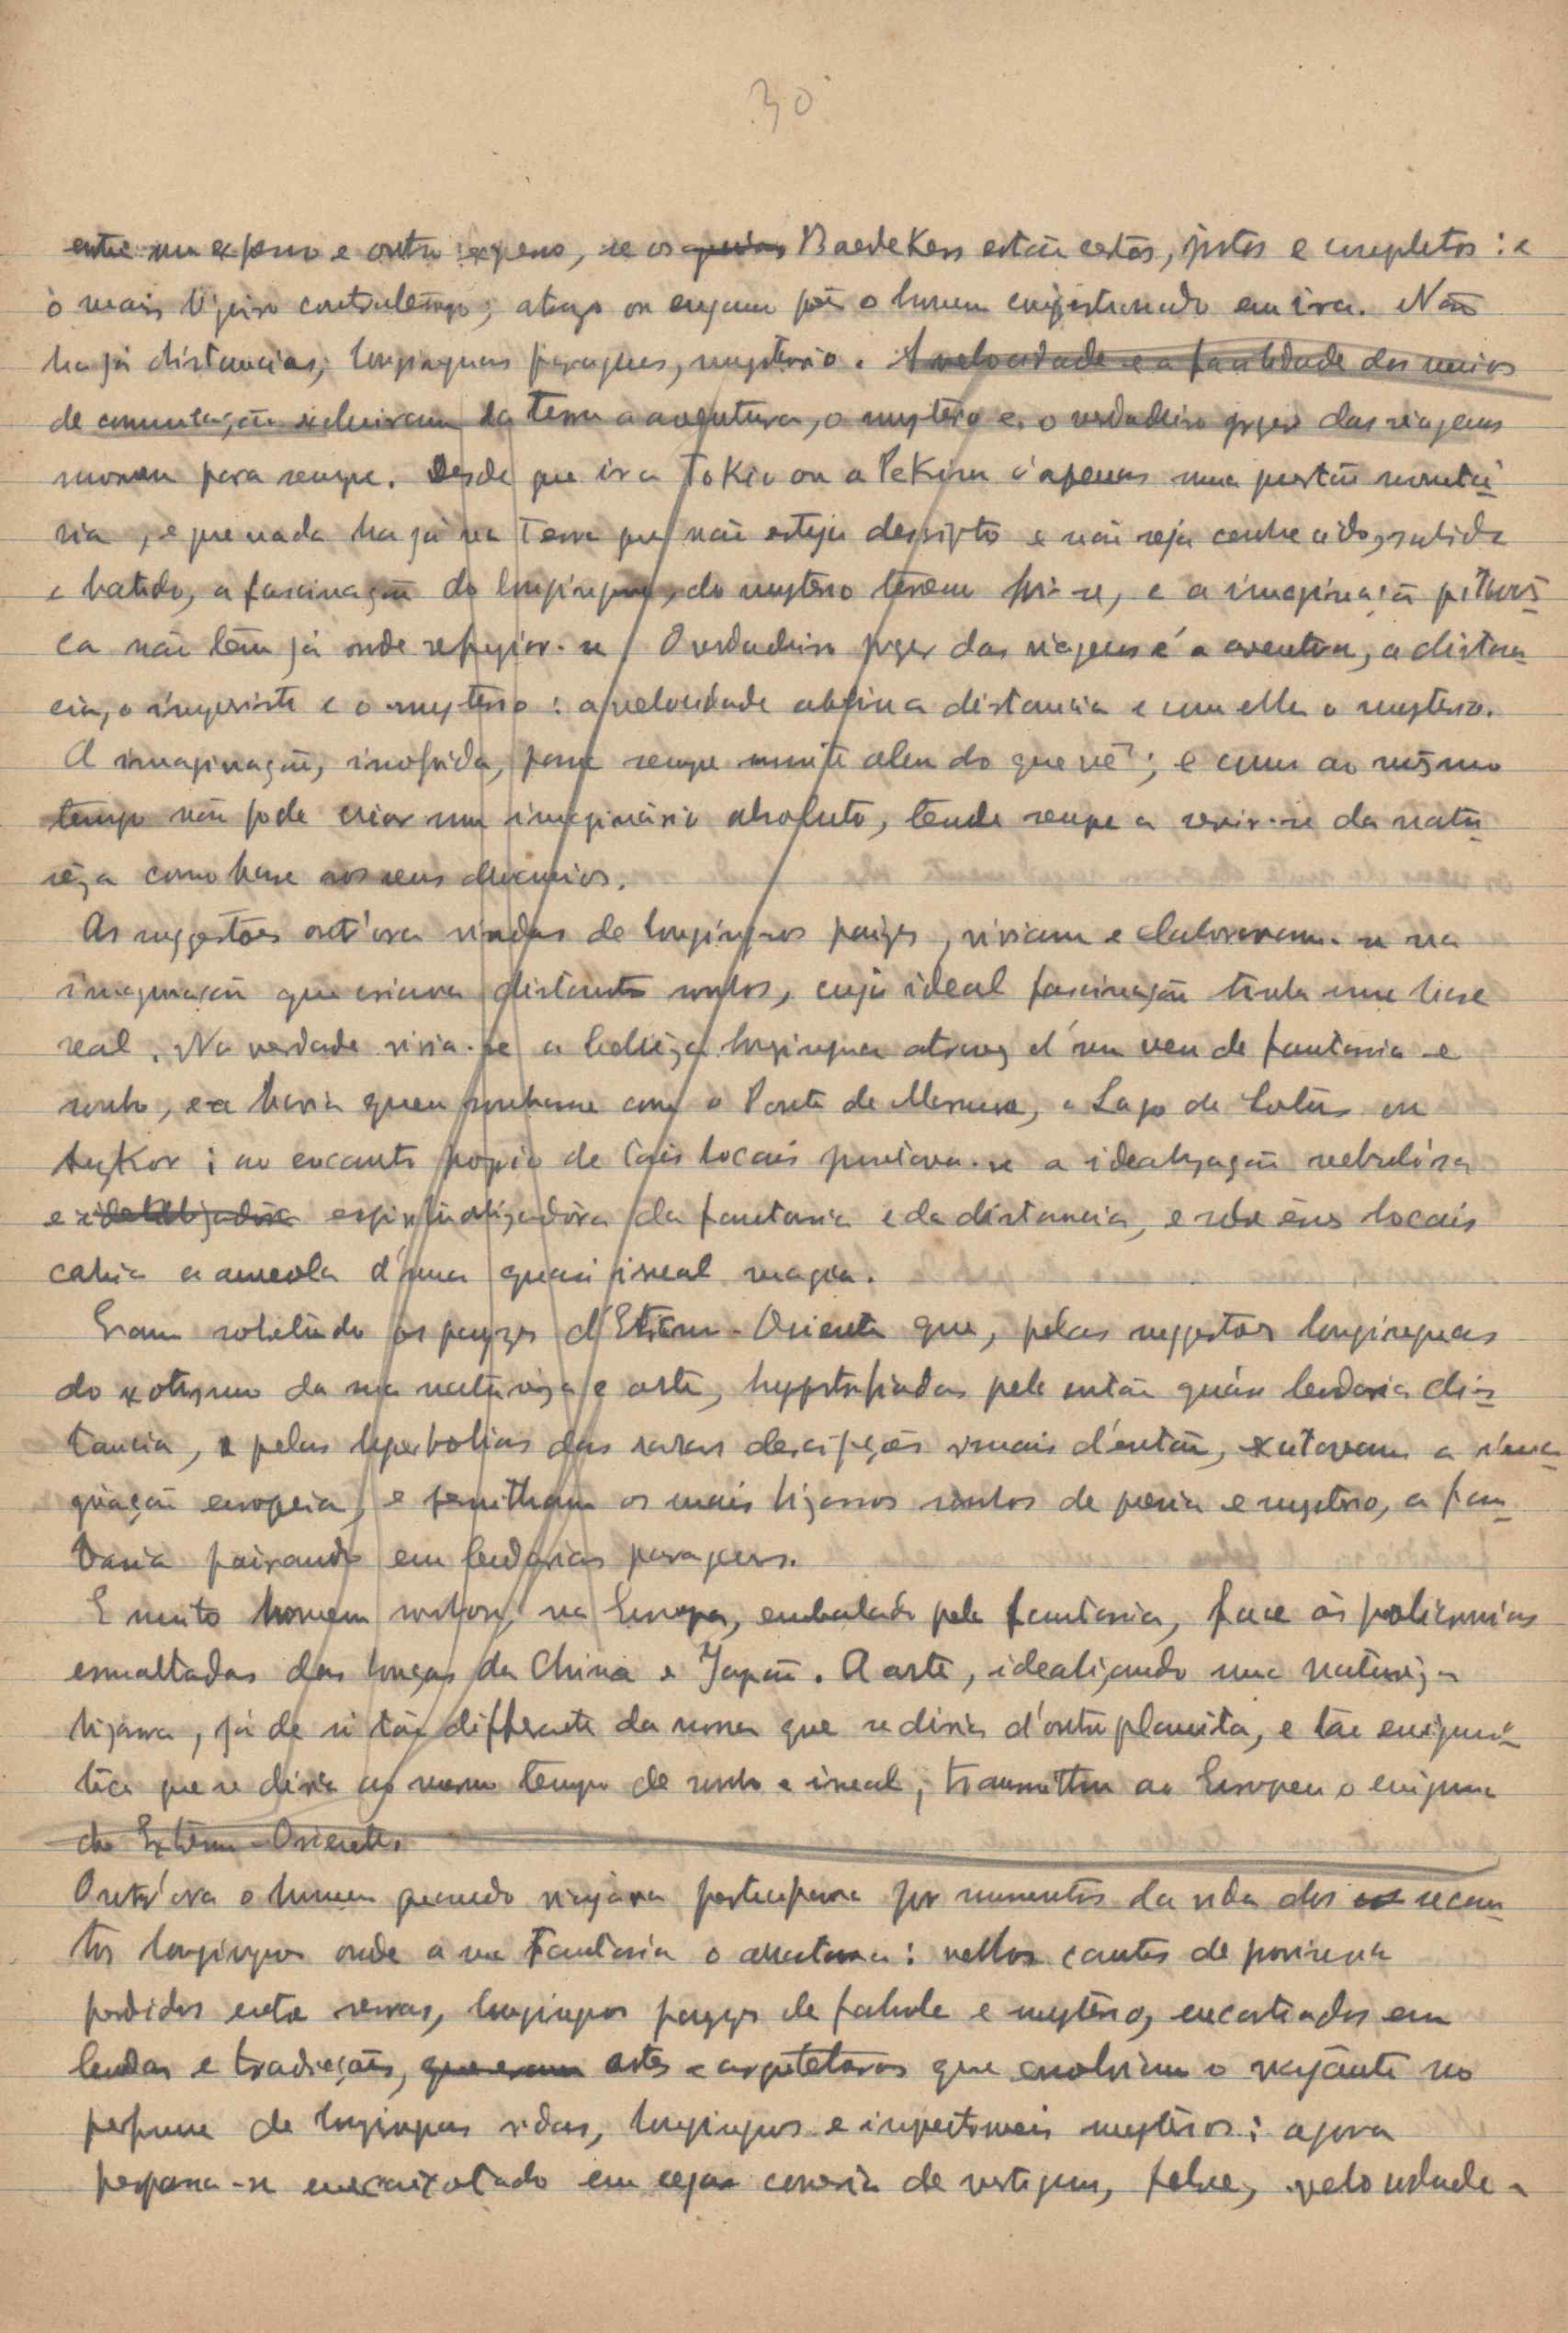 30
entre um expresso e outro expresso, se os guias Baedekers estão certos, justos e completos: e
o mais ligeiro contratempo, atrazo ou engano põe o homem em ira. Não
ha já distancias, longinquas paragens, mysterio. A velocidade e a facilidade dos meios
de comunicação excluiram da Terra a aventura, o mysterio e o verdadeiro prazer das viagens
morreu para sempre. Desde que ir a Tokio ou a Pekim é apenas uma questão monetá-
ria, e que nada ha já na Terra que não esteja descripto e não seja conhecido, sabido
e batido, a fascinação do longinquo, do mysterio foi-se, e a imaginação
ca não tem já onde refugiar-se. O verdadeiro prazer das viagens é a aventura, a distan-
cia, o imprevisto e o mysterio: a velocidade abolira a distancia e com ella o mysterio.
A imaginação, insofrida, passa sempre muito alem do que vê; e como ao mesmo
tempo não pode criar um imaginário absoluto, tende sempre a servir-se da natu-
reza como base aos seus devaneios.
As suggestões out'ora vindas de longinquos paizes, viviam e elaboravam-se na
imaginação que criava distantes sonhos, cuja ideal fascinação tinha uma base
real. Na verdade vivia-se a belleza longinqua atravez d'um veu de fantasia e
sonho, e havia quem sonhasse com a Ponte de Marmore, o Lago de Lotus ou
Angkor; ao encanto proprio de taes locais juntava-se a idealização nebulósa
e idealizadora espiritualizadôra da fantasia e da distancia, e sobre esses locais
cahia a aureola d'uma quasi irreal magia.
Eram sobretudo os paizes d'Extremo-Oriente que, pelas suggestões longinquas
do exotismo da sua natureza e arte, hypertrofiadas pela então quási lendaria dis-
tancia, e pelas hyperbolicas das raras descripções visuais d'então, excitavam a ima-
ginação europeia, e permittiam os mais bizarros sonhos de poesia e mysterio, a fan-
tasia pairando em lendarias paragens.
E muito homem sonhou, na Europa, embalado pela fantasia, face ás policromias
esmaltadas das louças da China e Japão. A arte, idealizando uma natureza
bizarra, já de si tão differente da nossa que se diria d'outro planeta, e tão enigmá-
tica que se diria ao mesmo tempo de sonho e irreal, transmittia ao Europeu o enigma
do Extremo-Oriente.
Outr'ora o homem quando viajava participava por momentos da vida dos recan-
tos longinquos onde a sua Fantasia o arrastava: velhos cantos de provincia
perdidos entre serras, longinquos paizes de fabula e mysterio, encastoados em
lendas e tradicções, que eram artes e arquitetoras que envolviam o viajante no
perfume de longinquas vidas, longinquos e mysterios: agora
perpassa-se encaixotado em cega correria de vertigem, febre, velocidade e